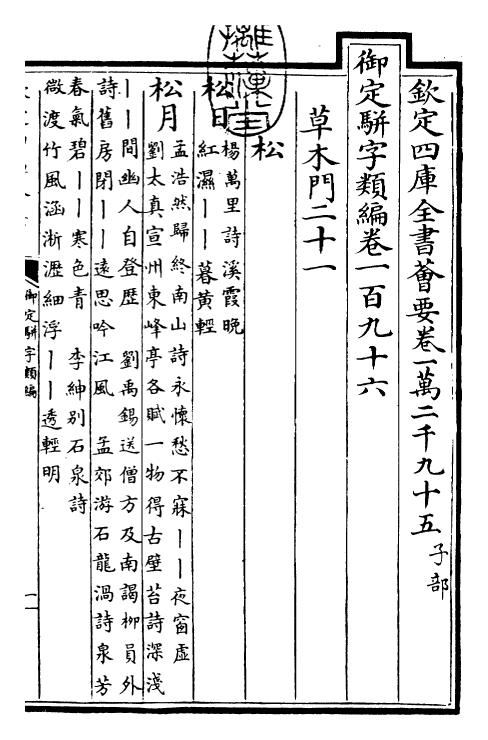 欽定四庫全書薈要卷一萬二千九十五 子部
御定駢字類編卷一百九十六
草木門二十一
松
松日 楊萬里詩溪霞晚
紅濕丨丨暮黄輕
松月 孟浩然歸終南山詩永懷愁不寐丨丨夜窗虛
劉太真宣州東峰亭各賦一物得古壁苔詩深淺
丨丨間幽人自登歷 劉禹錫送僧方及南謁柳員外
詩舊房閉丨丨遠思吟江風 孟郊游石龍渦詩泉芳
春氣碧丨丨寒色青 李紳别石泉詩
微渡竹風涵淅瀝細浮丨丨透輕明
御定駢字類編
一